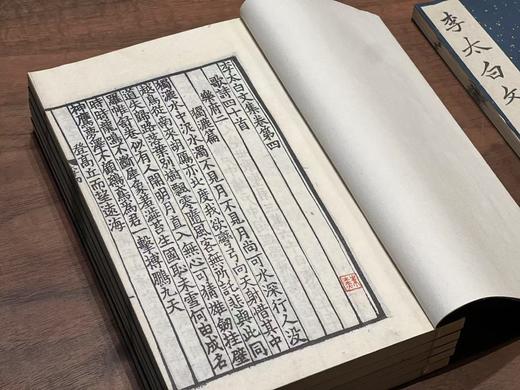 李太白文集卷第四
歌詩四十首
樂府二
獨漉篇
獨漉水中泥水濁不見月不見月尚可水深行人没
越鳥從南來胡鷹亦北度我欲彎弓向天射惜其中
道失歸路落葉別樹飄零隨風客無所託悲與此同
羅幃舒卷似有人開明月直入無心可猜雄劒挂壁
時時龍鳴不斷犀象繡澁苔生國恥未雪何由成名
神鷹夢澤不顧鴟鳶爲君一擊搏鵬九天
登高丘而望遠海
李太白文